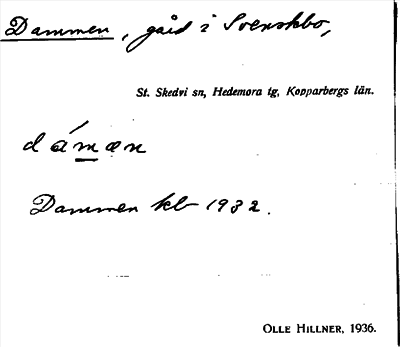 Dammen, gård i Svenskbo,
St. Skedvi sn, Hedemora tg, Kopparbergs län.
dámæn
Dammen kb 1932.
OLLE HILLNER, 1936.